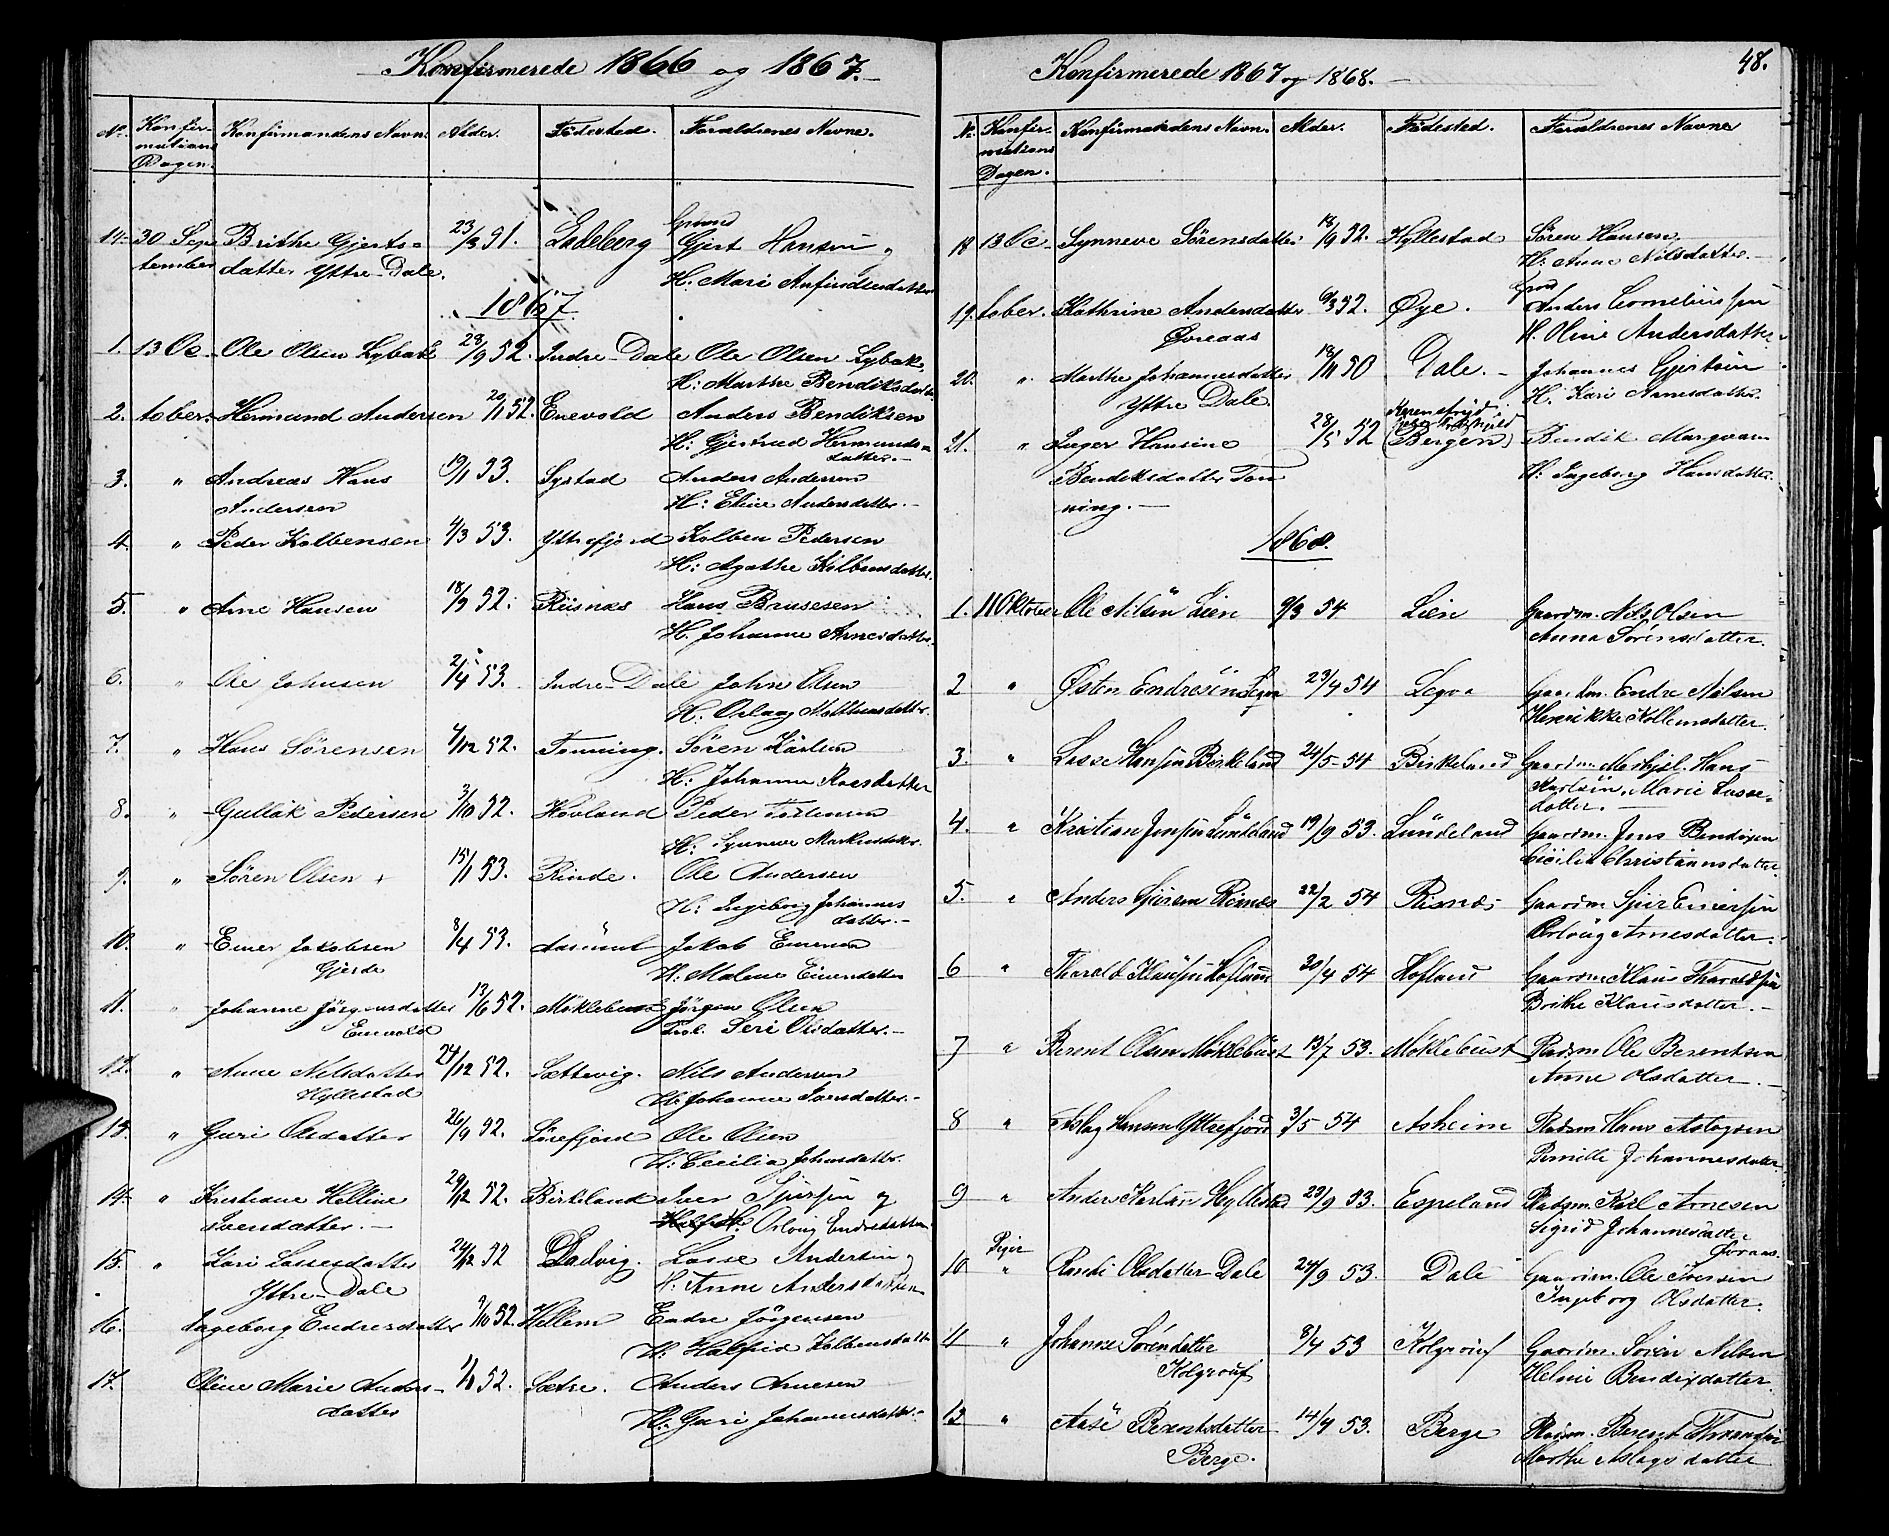 Konfirmerede 1866 og 1867.
No. Konfir- Konfirmandens Navn. Alder. Födested. Forældrenes Navne.
mations
Dagen.
14. 30 Sep- Brithe Gjerts- 23/3 51. Ladeberg Gjert Hansen
tember datter Yttre-Dale. H. Mari Anfindsendatter
1867
1. 13 Oc- Ole Olsen Lybæk 28/9 52. Indre-Dale Ole Olsen Lybæk
H: Marthe Bendiksdatter
2. tober. Hermund Andersen 52. Enevold Anders Bendiksen
H: Gjertrud Hermunds-
datter.
3. " Andreas Hans 53. Systad Anders Andersen
Andersen H: Eline Andersdatter.
4. " Peder Kolbensen 4/3 53. Yttrefjord Kolben Pedersen
H: Agathe Kolbensdatter.
5. " Arne Hansen 18/9 52. Risnes Hans Brusesen
H. Johanne Arnesdatter.
6. " Ole Johnsen 53. Indre-Dale John Olsen
H.
7. " Hans Sörensen 4/12 52. Tonning. Sören
H: Johanne
8. " Gullak Pedersen 3/10 52. Hovland Peder
H: Synneve Markusdatter.
9. " Sören Olsen + 15/1 53. Rinde. Ole Andersen
H: Ingeborg Johannes
datter.
10. " Einer Jakobsen 8/4 53. Jakob
Gjerde H: Malene
11. " Johanne Jörgensdatter 13/6 52. Möklebust Jörgen Olsen
Enevold Seri Olsdatter.
12. " Anne Nilsdatter 24/12 52. Sættevig. Nils Andersen
Hyllestad H: Johanne
13. " Guri Olsdatter 26/9 52. Sörefjord Ole Olsen
H: Cecilia Johnsdatter.
14. " Kristiane Helline 29/12 52. Birkeland Iver og
Iversdatter. Endresdatter
15. " Kari Lassesdatter 52 Ladvig. Lasse Andersen
Yttre-Dale H. Anne Andersdatter
16. Ingeborg Endresdatter 52. Hellem Endre Jörgensen
H: Kolbensdatter
17. Oline Marie Anders- 52. Sætre. Anders Arnesen
datter H: Guri Johannesdatter.

48.
Konfirmerede 1867 og 1868.
No. Konfir- Konfirmandens Navn. Alder. Födested. Forældrenes Navne
mations
Dagen.
18 13 Oc- Synneve Sörensdatter 18/9 52. Hyllestad Sören Hansen
H: Anne Nilsdatter.
19. tober. Kathrine Andersdatter 52. Øye. Anders Corneliussen
Øvreaas H. Oline Andersdatter
20. " Marthe Johannesdatter 18/11 50 Dale. Johannes Gjertsen
Yttre Dale. H. Kari Arnesdatter.
21. " Inger Hansine 28/5 52 (Bergen) Bendik
Bendiksdatter Ton H: Ingeborg Hansdatter.
ning.
1868.
1. 11 Oktober Ole Nilsen Lien 9/3 54 Lien Gaardm. Nils Olsen
Anna Sörensdatter.
2 " Østen Endresen 23/4 54 Gaardm. Endre Nilsen
Henrikke
3. " Lasse Hansen Birkeland 24/5 54 Birkeland Gaardm. Hans
Karlsen, Marie Lasse-
datter.
4. " Kristian Jensen Lundeland 19/9 53. Lundeland Gaardm. Jens Bendixen
Cicilie Christiansdatter.
5. " Anders Risnæs 22/2 54 Risnæs Gaardm.
Arnesdatter.
6 " Tharald Klausen Hofland 20/4 54 Hofland Gaardm. Klaus Tharaldsen
Brithe Klausdatter.
7 " Berent Olsen Möklebust 13/7 53. Möklebust Pladsm. Ole Berentsen
Anne Olsdatter.
8 " Aslag Hansen Yttrefjord 3/5 54 Asheim Pladsm. Hans Aslagsen
Pernille Johannesdatter
9 " Anders Karlsen Hyllestad 23/9 53. Espeland Pladsm. Karl Arnesen
Sigrid Johannesdatter
Piger
10 " Randi Olsdatter Dale 24/9 53. Dale Gaardm. Ole Iversen
Ingeborg Olsdatter.
11 " Johanne Sörensdatter 8/4 53 Kolgrouf Gaardm. Sören Nilsen
Kolgrouf Bendixdatter.
12 " Aase Berentsdatter 14/4 53. Berge Pladsm. Berent
Berge. Marthe Aslagsdatter